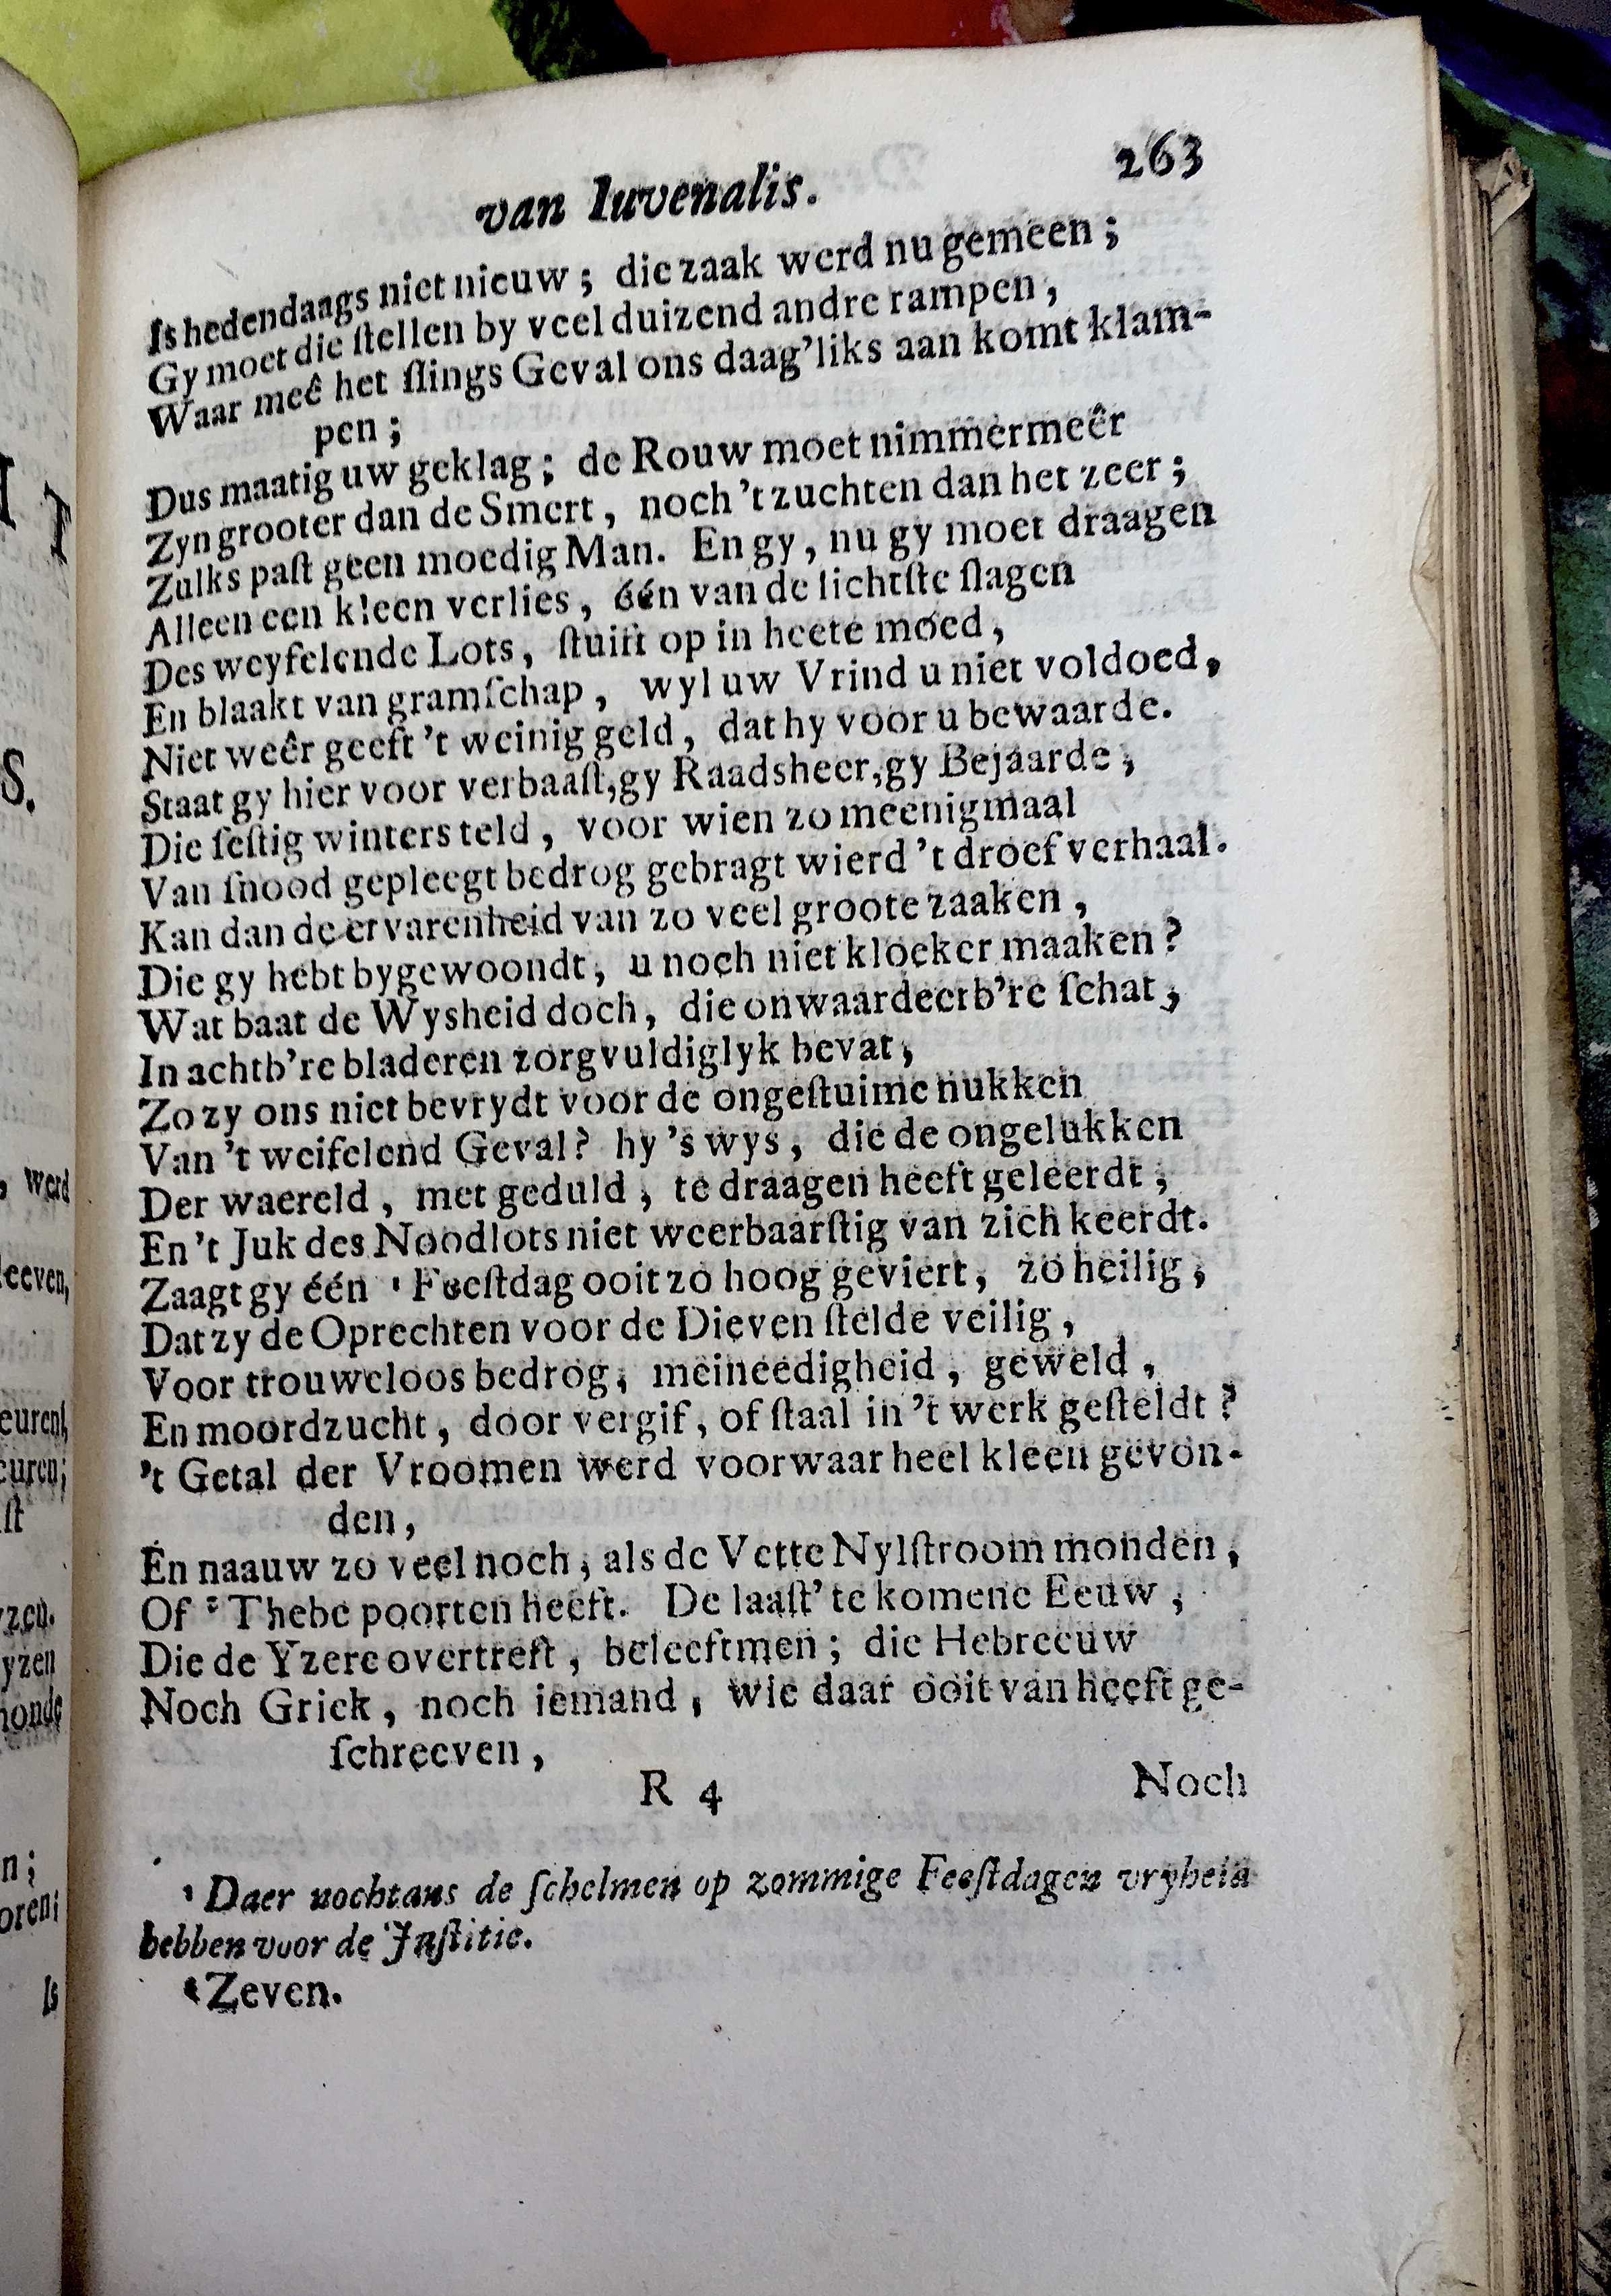 263
van Iuvenalis.
Is hedendaags niet nieuw; die zaak werd nu gemeen;
Gy moet die ſtellen by veel duizend andre rampen,
Waar meê het ſlings Geval ons daag'liks aan komt klam-
pen;
Dus maatig uw geklag; de Rouw moet nimmermeêr
Zyn grooter dan de Smert, noch 't zuchten dan het zeer;
Zulks paſt geen moedig Man. En gy, nu gy moet draagen
Alleen een kleen verlies, één van de lichtſte ſlagen
Des weyfelende Lots, ſtuift op in heete moed,
En blaakt van gramſchap, wyl uw Vrind u niet voldoed,
Niet weêr geeft 't weinig geld, dat hy voor u bewaarde.
Staat gy hier voor verbaaſt, gy Raadsheer, gy Bejaarde,
Die ſeſtig winters teld, voor wien zo meenigmaal
Van ſnood gepleegt bedrog gebragt wierd 't droef verhaal.
Kan dan de ervarenheid van zo veel groote zaaken,
Die gy hebt bygewoondt, u noch niet kloeker maaken?
Wat baat de Wysheid doch, die onwaardeerb're ſchat,
In achtb're bladeren zorgvuldiglyk bevat,
Zo zy ons niet bevrydt voor de ongeſtuime nukken
Van 't weifelend Geval? hy 's wys, die de ongelukken
Der waereld, met geduld, te draagen heeft geleerdt,
En 't Juk des Noodlots niet weerbaarſtig van zich keerdt.
Zaagt gy één ¹ Feeſtdag ooit zo hoog geviert, zo heilig,
Dat zy de Oprechten voor de Dieven ſtelde veilig,
Voor trouweloos bedrog, meineedigheid, geweld,
En moordzucht, door vergif, of ſtaal in 't werk geſteldt?
't Getal der Vroomen werd voorwaar heel kleen gevon-
den,
En naauw zo veel noch, als de Vette Nylſtroom monden,
Of ² Thebe poorten heeft. De laaſt' te komene Eeuw,
Die de Yzere overtreft, beleeft men; die Hebreeuw
Noch Griek, noch iemand, wie daar ooit van heeft ge-
ſchreeven,
R 4 Noch
¹ Daer nochtans de ſchelmen op zommige Feeſtdagen vryheid
hebben voor de Juſtitie.
² Zeven.